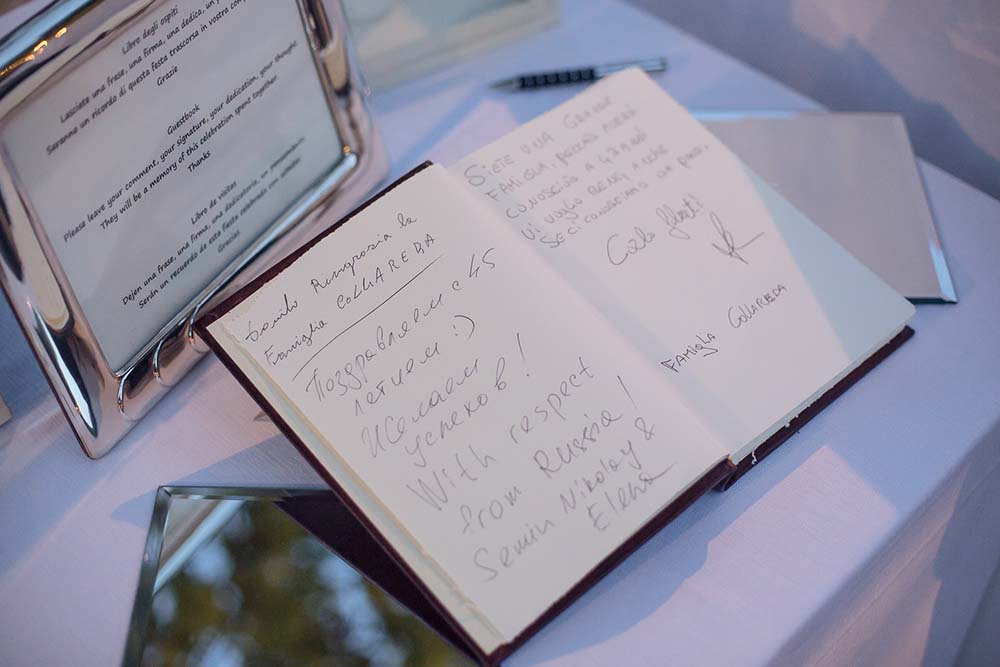 Libro degli ospiti
Lasciate una frase, una firma, una dedica, un
Saranno un ricordo di questa festa trascorsa in vostra
Grazie
Guestbook
Please leave your comment, your signature, your dedication, your thought
They will be a memory of this celebration spent together.
Thanks
Libro de visitas
Dejen una frase, una firma, una dedicatoria, un
Serán un recuerdo de esta fiesta celebrada con
Gracias
Danilo Ringrazia la
Famiglia COLLAREDA
Поздравляем с 45
летием :)
Желаем
успехов!
With respect
from Russia!
Semin Nikolay &
Elena
SIETE UNA GRANDE
FAMIGLIA, PECCATO AVERVI
CONOSCIUTO A
VI VOGLIO BENE, ANCHE
SE CI CONOSCIAMO DA POCO.
Carlo
FAMIGLIA COLLAREDA